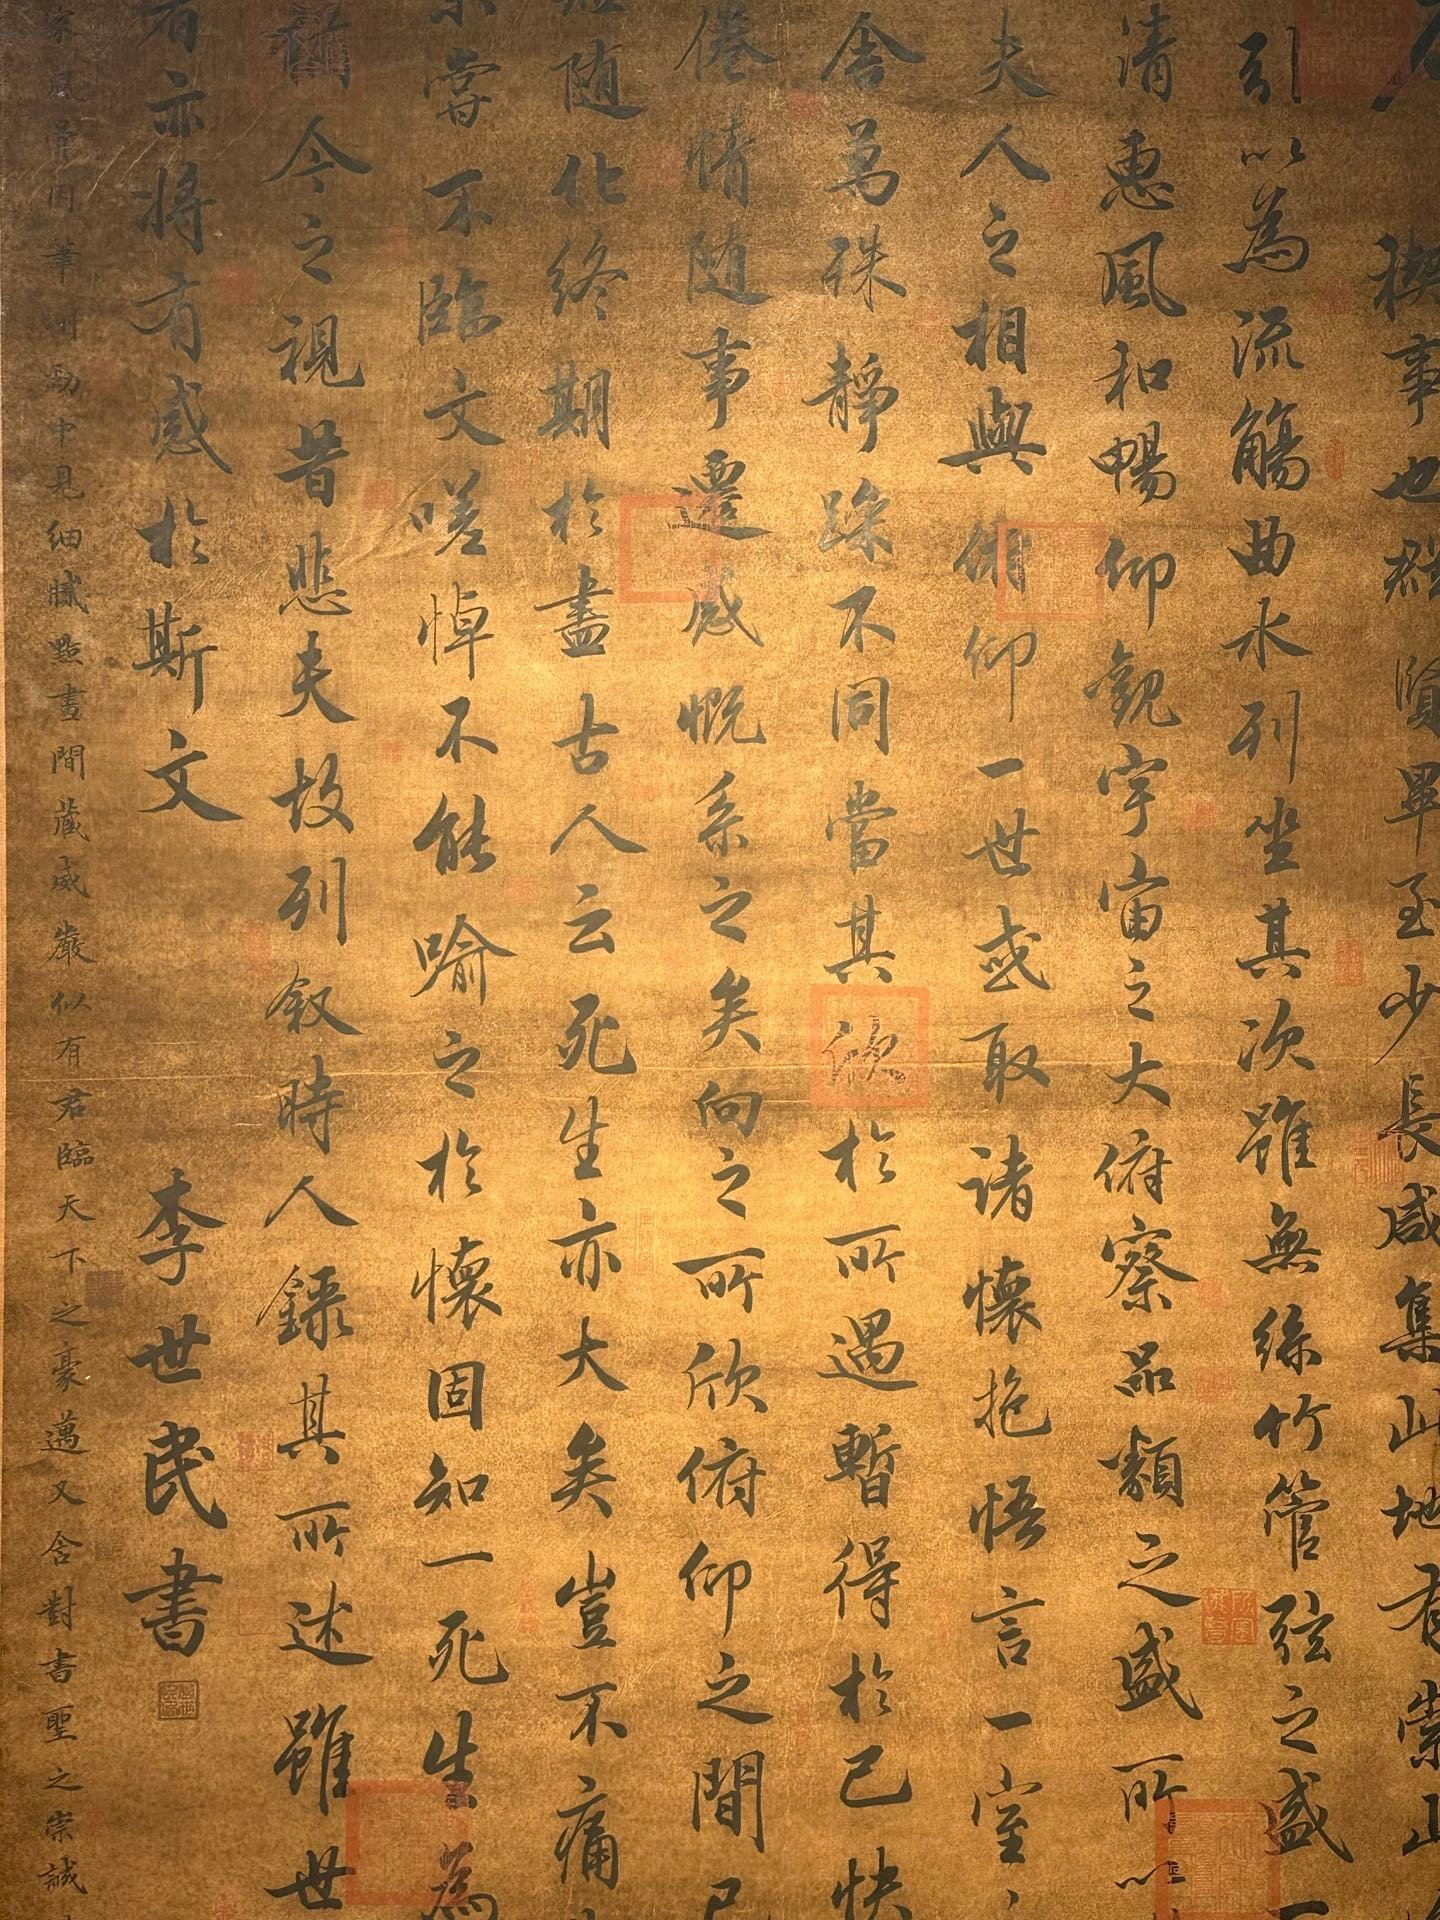 禊事也群賢畢至少長咸集此地有崇山
引以為流觴曲水列坐其次雖無絲竹管弦之盛一
清惠風和暢仰觀宇宙之大俯察品類之盛所以
夫人之相與俯仰一世或取諸懷抱悟言一室
舍萬殊靜躁不同當其欣於所遇暫得於己快
倦情隨事遷感慨系之矣向之所欣俯仰之間已
隨化終期於盡古人云死生亦大矣豈不痛
嘗不臨文嗟悼不能喻之於懷固知一死生為
今之視昔悲夫故列叙時人錄其所述雖世
者亦將有感於斯文 李世民書
中見細膩點畫間藏威嚴似有君臨天下之豪邁又含對書聖之崇誠